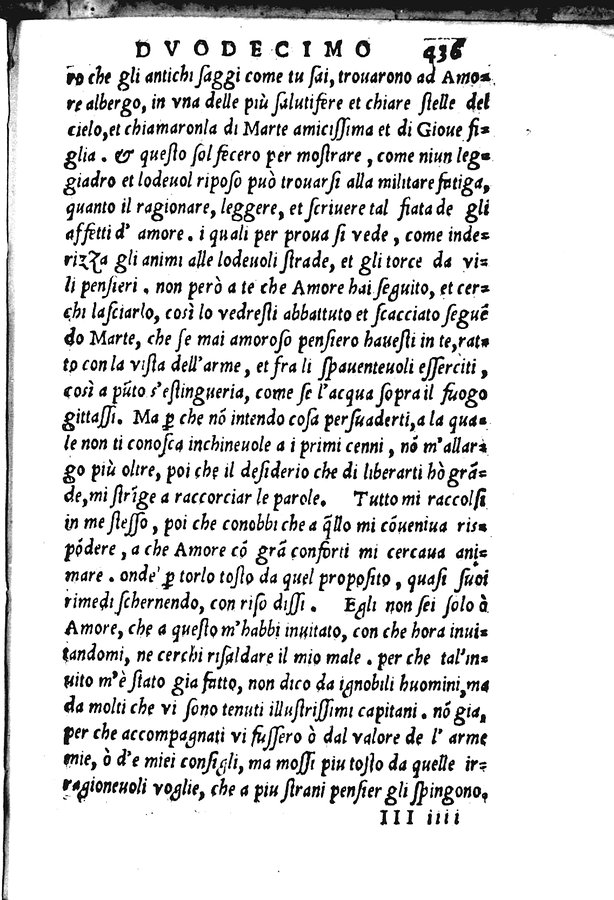 DVODECIMO 436
ro che gli antichi ſaggi come tu ſai, trouarono ad Amo=
re albergo, in vna delle più ſalutifere et chiare ſtelle del
cielo, et chiamaronla di Marte amiciſſima et di Gioue fi=
glia . & queſto ſol fecero per moſtrare , come niun leg=
giadro et lodeuol ripoſo può trouarſi alla militare fatiga,
quanto il ragionare, leggere, et ſcriuere tal fiata de gli
affetti d' amore . i quali per proua ſi vede , come inde=
rizza gli animi alle lodeuoli ſtrade, et gli torce da vi=
li penſieri . non però a te che Amore hai ſeguito, et cer=
chi laſciarlo, così lo vedreſti abbattuto et ſcacciato ſeguē
do Marte, che ſe mai amoroſo penſiero haueſti in te, rat=
to con la viſta dell'arme , et fra li ſpauenteuoli eſſerciti ,
così a pūto s'eſtingueria, come ſe l'acqua ſopra il fuogo
gittaſſi. Ma ꝑ che nō intendo coſa perſuaderti, a la qua=
le non ti conoſca inchineuole a i primi cenni , nō m'allar=
go più oltre, poi che il deſiderio che di liberarti hò grā=
de, mi ſtrīge a raccorciar le parole. Tutto mi raccolſi
in me ſteſſo , poi che conobbi che a q̄llo mi cōueniua ris=
pōdere , a che Amore cō grā conforti mi cercaua ani=
mare . onde' ꝑ torlo toſto da quel propoſito , quaſi ſuoi
rimedi ſchernendo, con riſo diſſi . Egli non ſei ſolo ò
Amore, che a queſto m'habbi inuitato, con che hora inui=
tandomi, ne cerchi riſaldare il mio male . per che tal'in=
uito m'è ſtato gia fatto, non dico da ignobili huomini, ma
da molti che vi ſono tenuti illuſtriſſimi capitani . nō gia,
per che accompagnati vi fuſſero ò dal valore de l' arme
mie, ò d'e miei conſigli, ma moſſi piu toſto da quelle ir=
ragioneuoli voglie, che a piu ſtrani penſier gli ſpingono,
III iiii